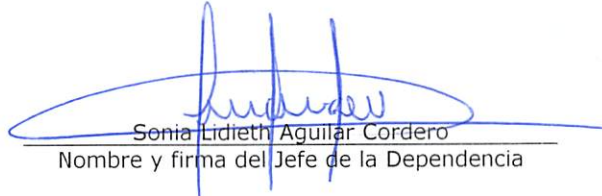 Sonia Lidieth Aguilar Cordero
Nombre y firma del Jefe de la Dependencia